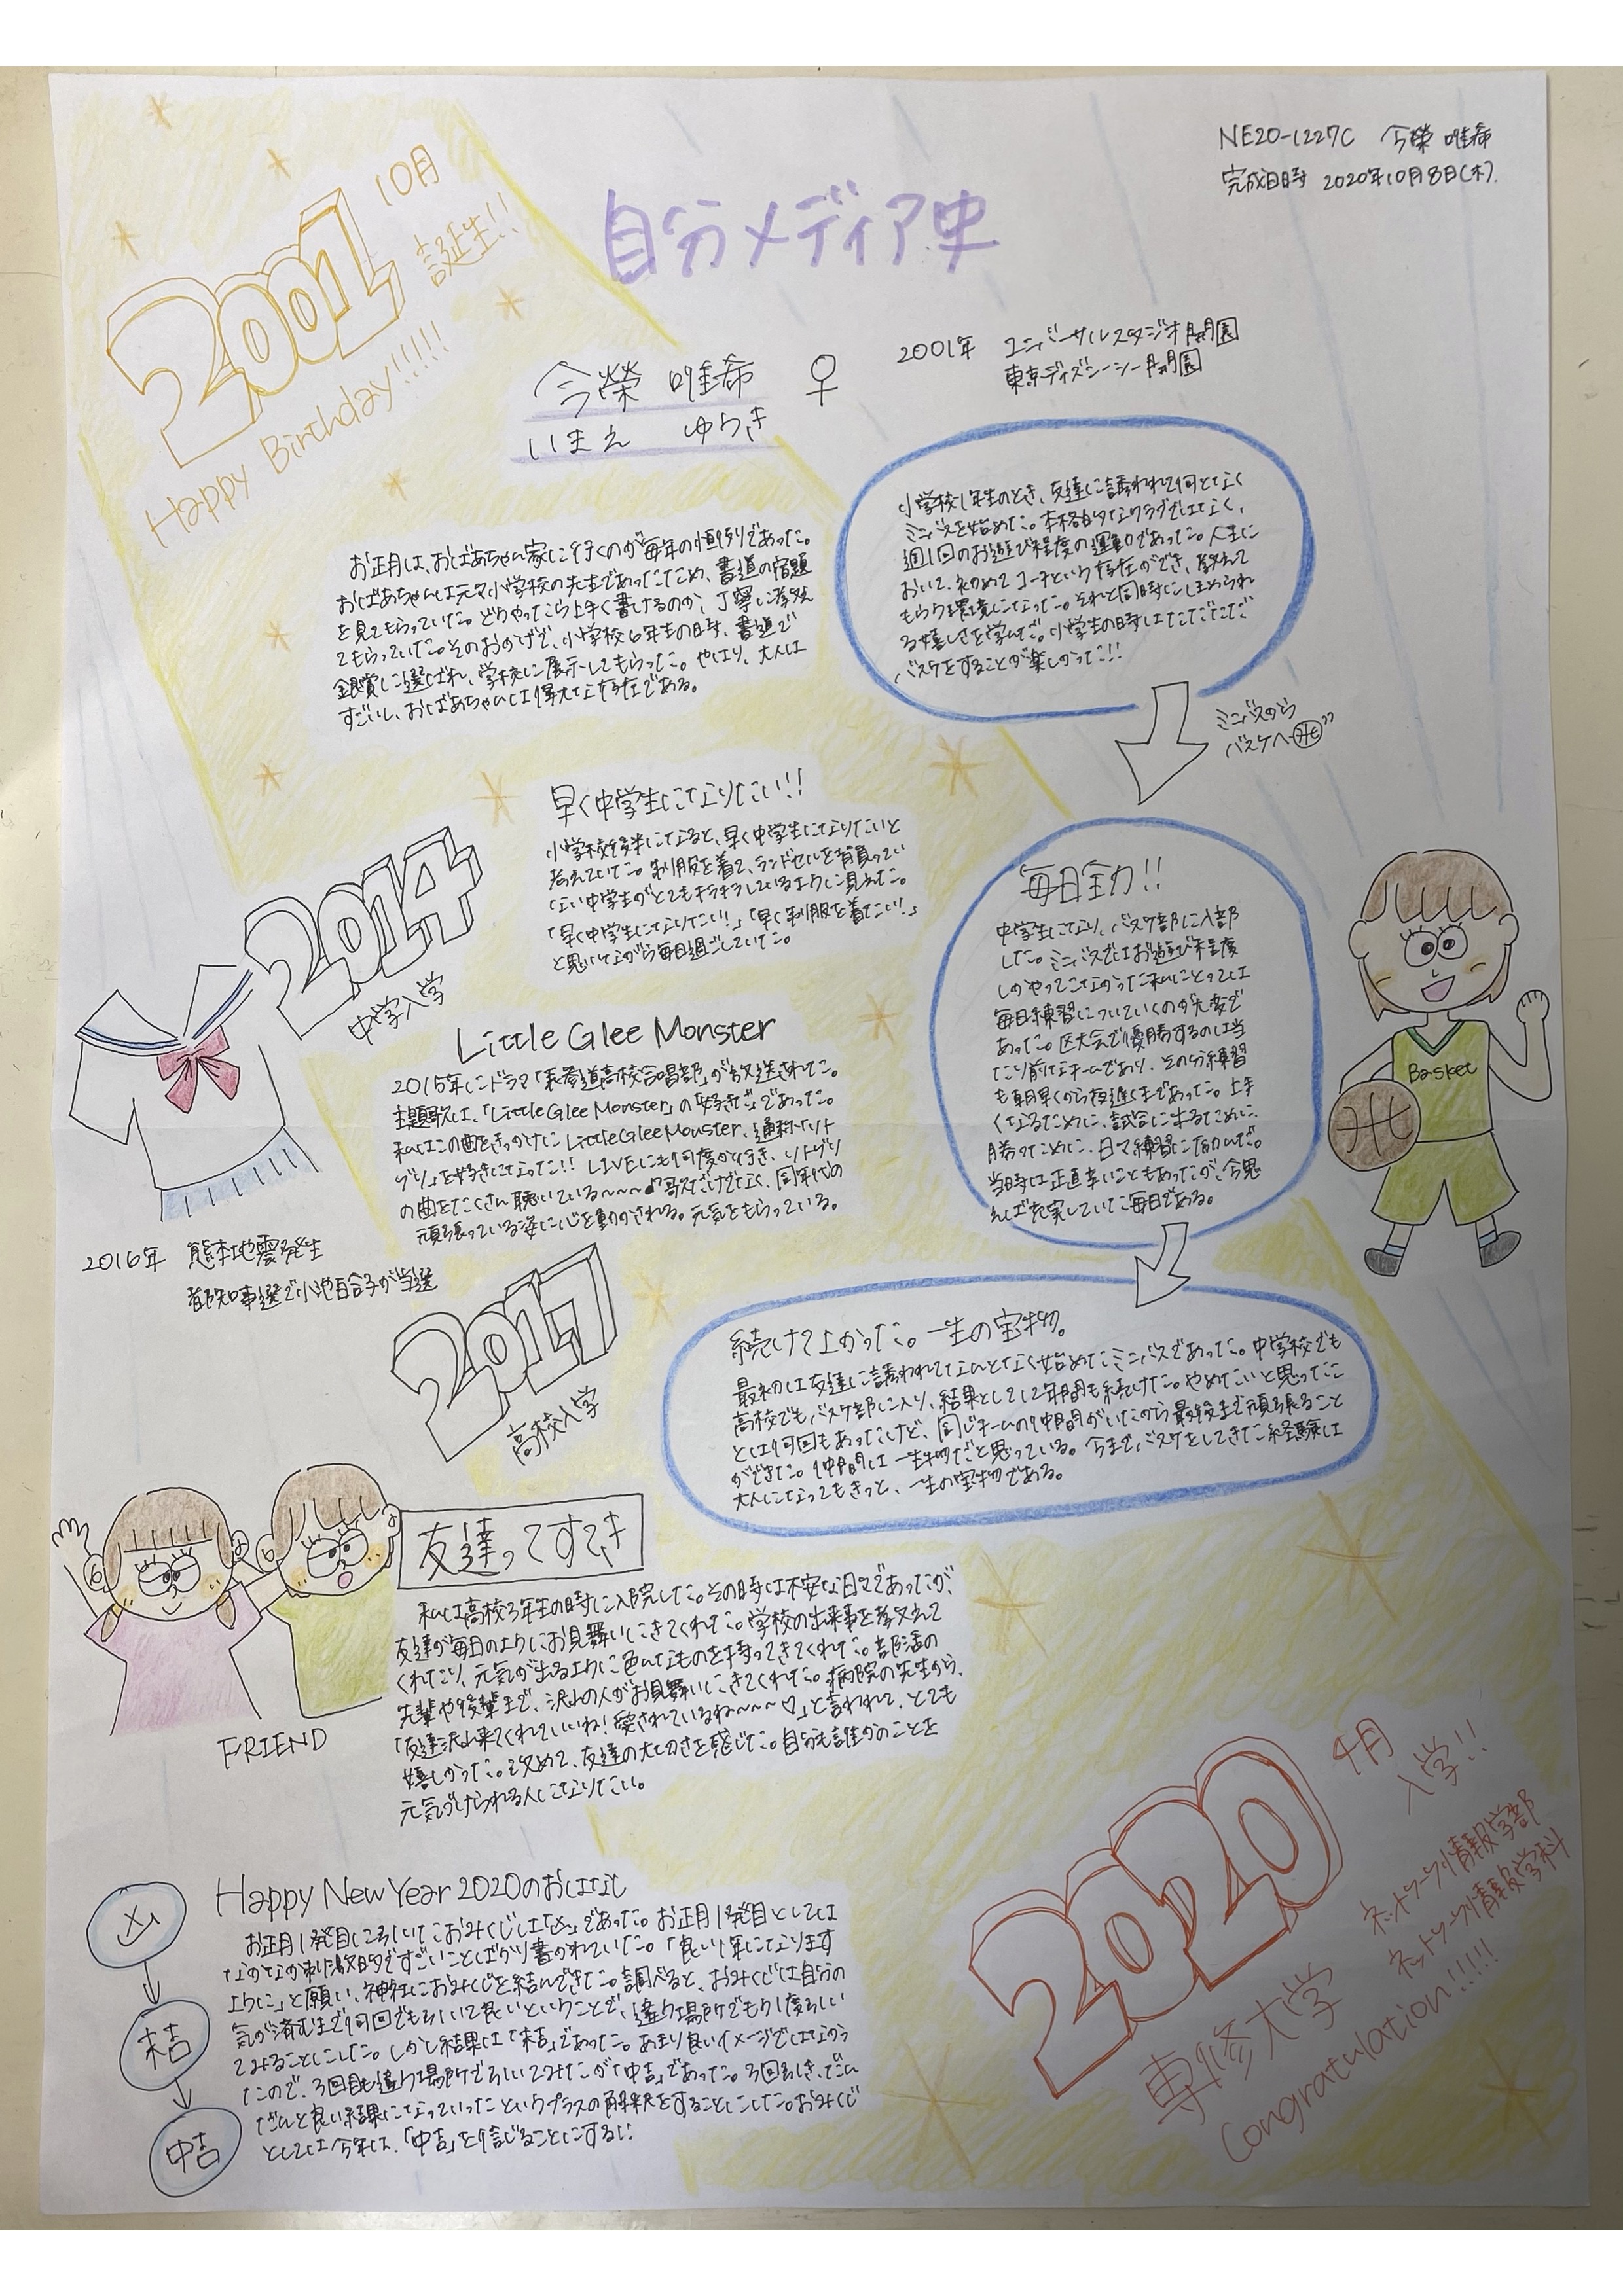 NE20-1227C 今榮 唯希
完成日時 2020年10月8日(木).
自分メディア史
2001
10月
誕生!!
Happy Birthday!!!!!
今榮 唯希 ♀
いまえ ゆらき
2001年 ユニバーサルスタジオ開園
東京ディズニーシー開園
お正月は、おばあちゃん家に行くのが毎年の恒例であった。
おばあちゃんは元々小学校の先生であったため、書道の宿題
を見てもらっていた。どうやったら上手く書けるのか、丁寧に教え
てもらっていた。そのおかげで、小学校6年生の時、書道で
銀賞に選ばれ、学校に展示してもらった。やはり、大人は
すごいし、おばあちゃんは偉大な存在である。
小学校1年生のとき、友達に誘われて何となく
ミニバスを始めた。本格的なクラブではなく、
週1回のお遊び程度の運動であった。人生に
おいて、初めてコーチという存在ができ、教えて
もらう環境になった。それと同時にほめられ
る嬉しさを学んだ。小学生の時はただただただ
バスケをすることが楽しかった!!
ミニバスから
バスケへ
早く中学生になりたい!!
小学校後半になると、早く中学生になりたいと
考えていた。制服を着て、ランドセルを背負ってい
ない中学生がとてもキラキラしているように見えた。
「早く中学生になりたい!」「早く制服を着たい!」
と思いながら毎日過ごしていた。
2014
中学入学
毎日全力!!
中学生になり、バスケ部に入部
した。ミニバスではお遊び程度
しかやってこなかった私にとっては
毎日練習についていくのが大変で
あった。区大会で優勝するのは当
たり前なチームであり、その分練習
も朝早くから夜遅くまであった。上手
くなるために、試合に出るために、
勝つために、日々練習に励んだ。
当時は正直辛いこともあったが、今思
えば充実していた毎日である。
Basket
Little Glee Monster
2015年にドラマ「表参道高校合唱部」が放送された。
主題歌は、「Little Glee Monster」の「好きだ」であった。
私はこの曲をきっかけにLittle Glee Monster、通称「リト
グリ」を好きになった!! LIVEにも何度か行き、リトグリ
の曲をたくさん聴いている~~~♪歌だけでなく、同年代の
頑張っている姿に心を動かされる。元気をもらっている。
2016年 熊本地震発生
都知事選で小池百合子が当選
2017
高校入学
続けてよかった。一生の宝物。
最初は友達に誘われてなんとなく始めたミニバスであった。中学校でも
高校でもバスケ部に入り、結果として12年間も続けた。やめたいと思ったこ
とは何回もあったけど、同じチームの仲間がいたから最後まで頑張ること
ができた。仲間は一生物だと思っている。今までバスケをしてきた経験は
大人になってもきっと、一生の宝物である。
友達ってすてき
私は高校3年生の時に入院した。その時は不安な日々であったが、
友達が毎日のようにお見舞いにきてくれた。学校の出来事を教えて
くれたり、元気が出るように色んなものを持ってきてくれた。部活の
先輩や後輩まで、沢山の人がお見舞いにきてくれた。病院の先生から、
「友達沢山来てくれていいね!愛されているね~~~♡」と言われて、とても
嬉しかった。改めて、友達の大切さを感じた。自分も誰かのことを
元気づけられる人になりたい。
FRIEND
Happy New Year 2020のおはなし
お正月1発目にひいたおみくじは「凶」であった。お正月1発目としては
なかなか刺激的ですごいことばかり書かれていた。「良い1年になります
ように」と願い、神社におみくじを結んできた。調べると、おみくじは自分の
気が済むまで何回でもひいて良いということで、違う場所でもう1度ひい
てみることにした。しかし結果は「末吉」であった。あまり良いイメージではなかっ
たので、3回目も違う場所でひいてみたが「中吉」であった。3回ひき、だん
だんと良い結果になっていったというプラスの解釈をすることにした。おみくじ
としては今年は、「中吉」を信じることにする!!
凶
末吉
中吉
2020
4月
入学!!
ネットワーク情報学部
ネットワーク情報学科
専修大学
Congratulation!!!!!